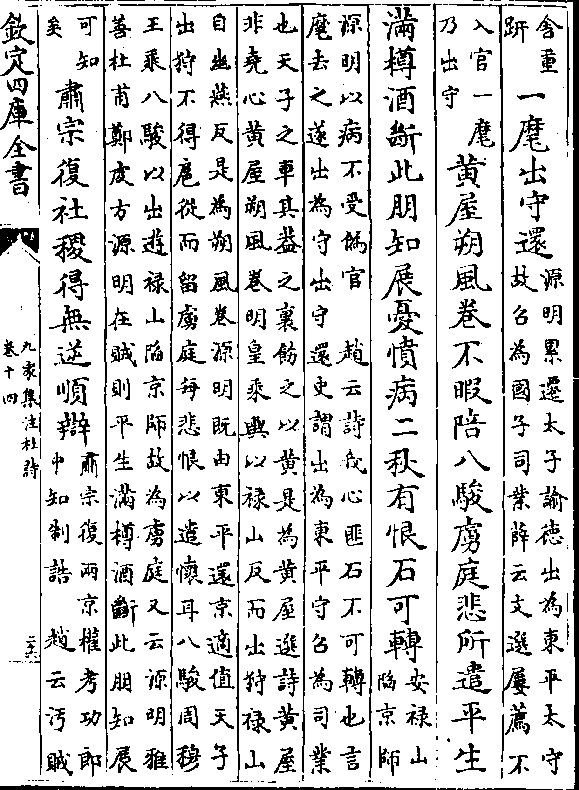 舍重
趼
一麾出守還
源明累遷太子諭德出為東平太守
故召為國子司業薛云文選屢薦不
入官一麾
乃出守
黄屋朔風卷不暇陪八駿虜庭悲所遣平生
滿樽酒斷此朋知展憂憤病二秋有恨石可轉
安禄山
陷京師
源明以病不受僞官　趙云詩我心匪石不可轉也言
麾去之遂出為守出守還史謂出為東平守召為司業
也天子之車其葢之裏飭之以黄是為黄屋選詩黄屋
非堯心黄屋朔風卷明皇乘輿以禄山反而出狩禄山
自幽燕反是為朔風卷源明既由東平還京適值天子
出狩不得扈從而留虜庭每悲恨以遣懷耳八駿周穆
王乘八駿以出遊禄山陷京師故為虜庭又云源明雅
善杜甫鄭虔方源明在賊則平生滿樽酒斷此朋知展
可知
矣
肅宗復社稷得無逆順辯
肅宗復兩京擢考功郎
中知制誥　趙云汚賊
欽定四庫全書
九家集注杜詩
卷十四